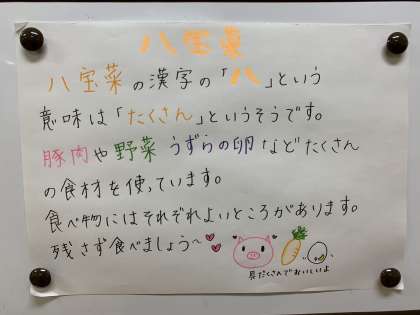 八宝菜
八宝菜の漢字の「八」という
意味は「たくさん」というそうです。
豚肉や野菜 うずらの卵 などたくさん
の食材を使っています。
食べ物にはそれぞれよいところがあります。
残さず食べましょう〜
具だくさんでおいしいよ